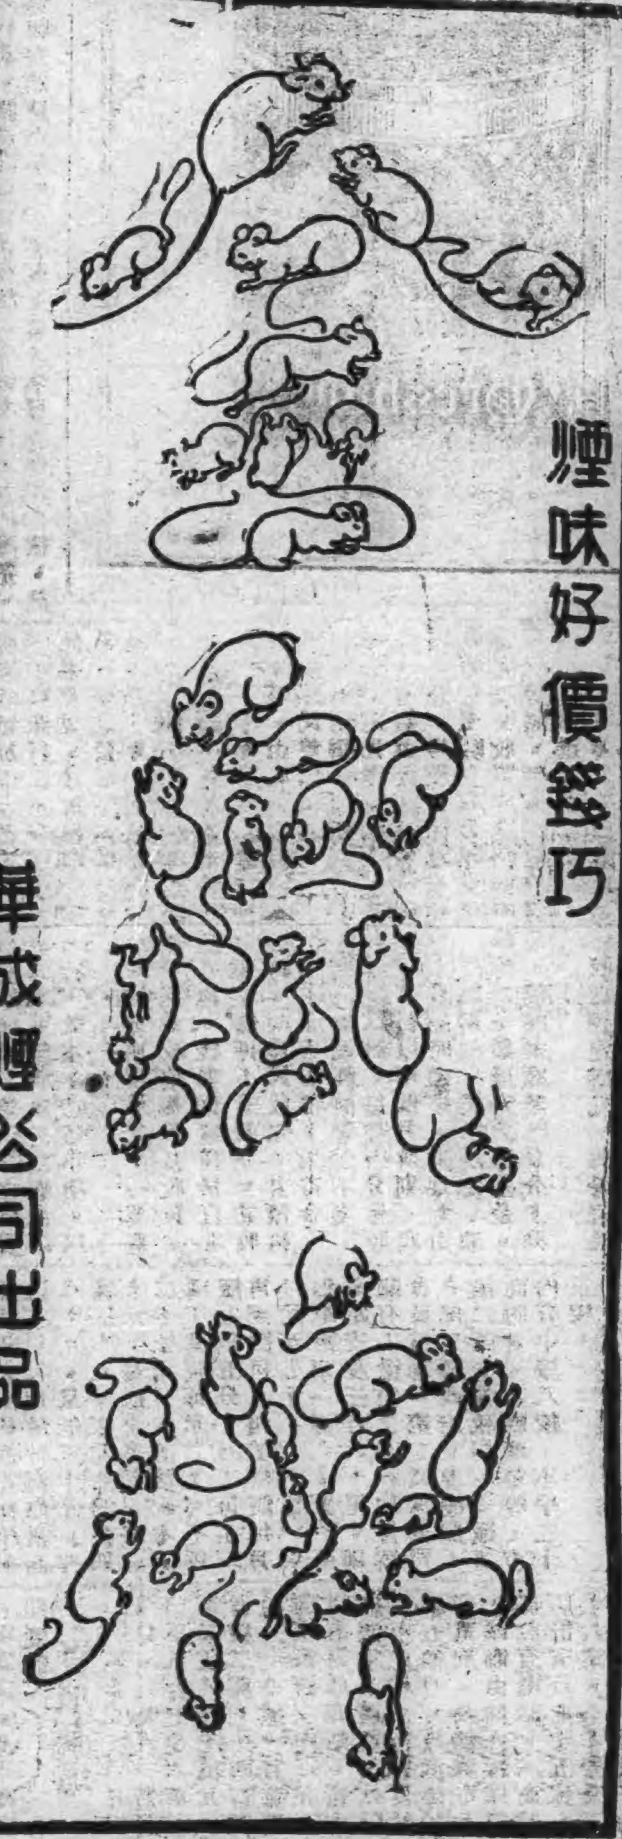 煙味好價錢巧
金鼠牌
華成煙公司出品